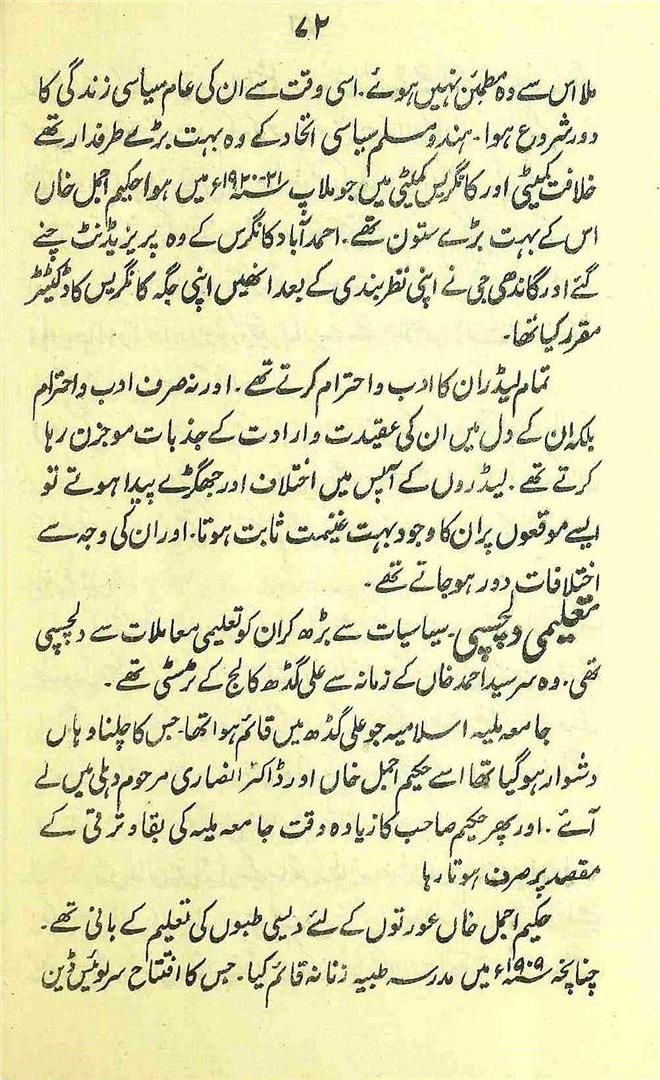 ۷۲
ملا اس سے وہ مطمئن نہیں ہوئے۔ اسی وقت سے ان کی عام سیاسی زندگی کا
دور شروع ہوا۔ ہندو مسلم سیاسی اتحاد کے وہ بہت بڑے طرفدار تھے
خلافت کمیٹی اور کانگریس کمیٹی میں جو ملاپ ۲۱-۱۹۲۰ء میں ہوا حکیم اجمل خاں
اس کے بہت بڑے ستون تھے۔ احمد آباد کانگرس کے وہ پریزیڈنٹ چنے
گئے اور گاندھی جی نے اپنی نظر بندی کے بعد انھیں اپنی جگہ کانگریس کا ڈکٹیٹر
مقرر کیا تھا۔
تمام لیڈر ان کا ادب و احترام کرتے تھے۔ اور نہ صرف ادب و احترام
بلکہ ان کے دل میں ان کی عقیدت و ارادت کے جذبات موجزن رہا
کرتے تھے۔ لیڈروں کے آپس میں اختلاف اور جھگڑے پیدا ہوتے تو
ایسے موقعوں پر ان کا وجود بہت غنیمت ثابت ہوتا۔ اور ان کی وجہ سے
اختلافات دور ہو جاتے تھے۔
تعلیمی دلچسپی۔ سیاسیات سے بڑھ کر ان کو تعلیمی معاملات سے دلچسپی
تھی۔ وہ سرسید احمد خاں کے زمانہ سے علی گڈھ کالج کے ٹرسٹی تھے۔
جامعہ ملیہ اسلامیہ جو علی گڈھ میں قائم ہوا تھا۔ جس کا چلنا وہاں
دشوار ہو گیا تھا اسے حکیم اجمل خاں اور ڈاکٹر انصاری مرحوم دہلی میں لے
آئے۔ اور پھر حکیم صاحب کا زیادہ وقت جامعہ ملیہ کی بقا و ترقی کے
مقصد پر صرف ہوتا رہا
حکیم اجمل خاں عورتوں کے لئے دلیسی طبوں کی تعلیم کے بانی تھے۔
چنانچہ ۱۹۰۹ء میں مدرسہ طبیہ زنانہ قائم کیا۔ جس کا افتتاح سرلوئیس ڈین